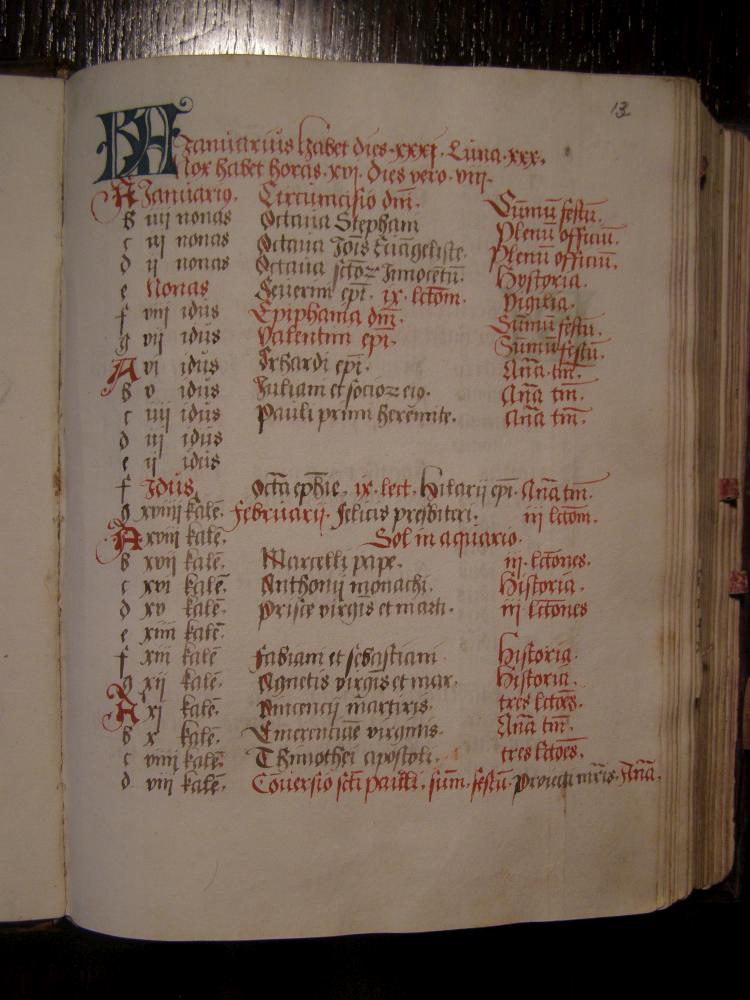 13
KA Januariꝰ habet dies xxxj. Luna xxx.
Nox habet horas xvj. dies vero viij.
A Januario. Circumcisio dnī. Sum̄ū festū.
b iiij nonas Octaua Stephani Plenū officiū.
c iij nonas Octaua Jois Euāgeliste. Plenū officiū.
d ij nonas Octaua sctoꝝ Innocētū. Hystoria.
e Nonas Seuerini epi. ix. lctōm. Vigilia.
f viij idus Epiphania dnī. Sum̄ū festū.
g vij idus Valentini epi. Sum̄ū festū.
A vj idus Erhardi epi. Aña. tm̄.
b v idus Juliani et socioꝝ eiꝰ. Aña tm̄.
c iiij idus Pauli primi heremite. Aña tm̄.
d iij idus
e ij idus
f Idus Octā ephīe. ix. lect. Hilarij epi. Aña tm̄.
g xviiij kalē. februarij. Felicis presbiteri. iij lctōm.
A xviij kalē. Sol in aquario.
b xvij kalē. Marcelli pape. iij. lctōnes.
c xvj kalē. Anthonij monachi. Historia.
d xv kalē. Prisce virgīs et marti. iij lctōnes
e xiiij kalē.
f xiij kalē Fabiani et sebastiani Historia.
g xij kalē. Agnetis virgīs et mar. Historia.
A xj kalē. Vincencij martiris. tres lctōes.
b x kalē. Emerenciāe virginis. Aña tm̄.
c viiij kalē. Thimothei apostoli. tres lctōes.
d viij kalē. Cōuersio scti paulli. sum̄. festū. Proiecti mr̄is. Aña.